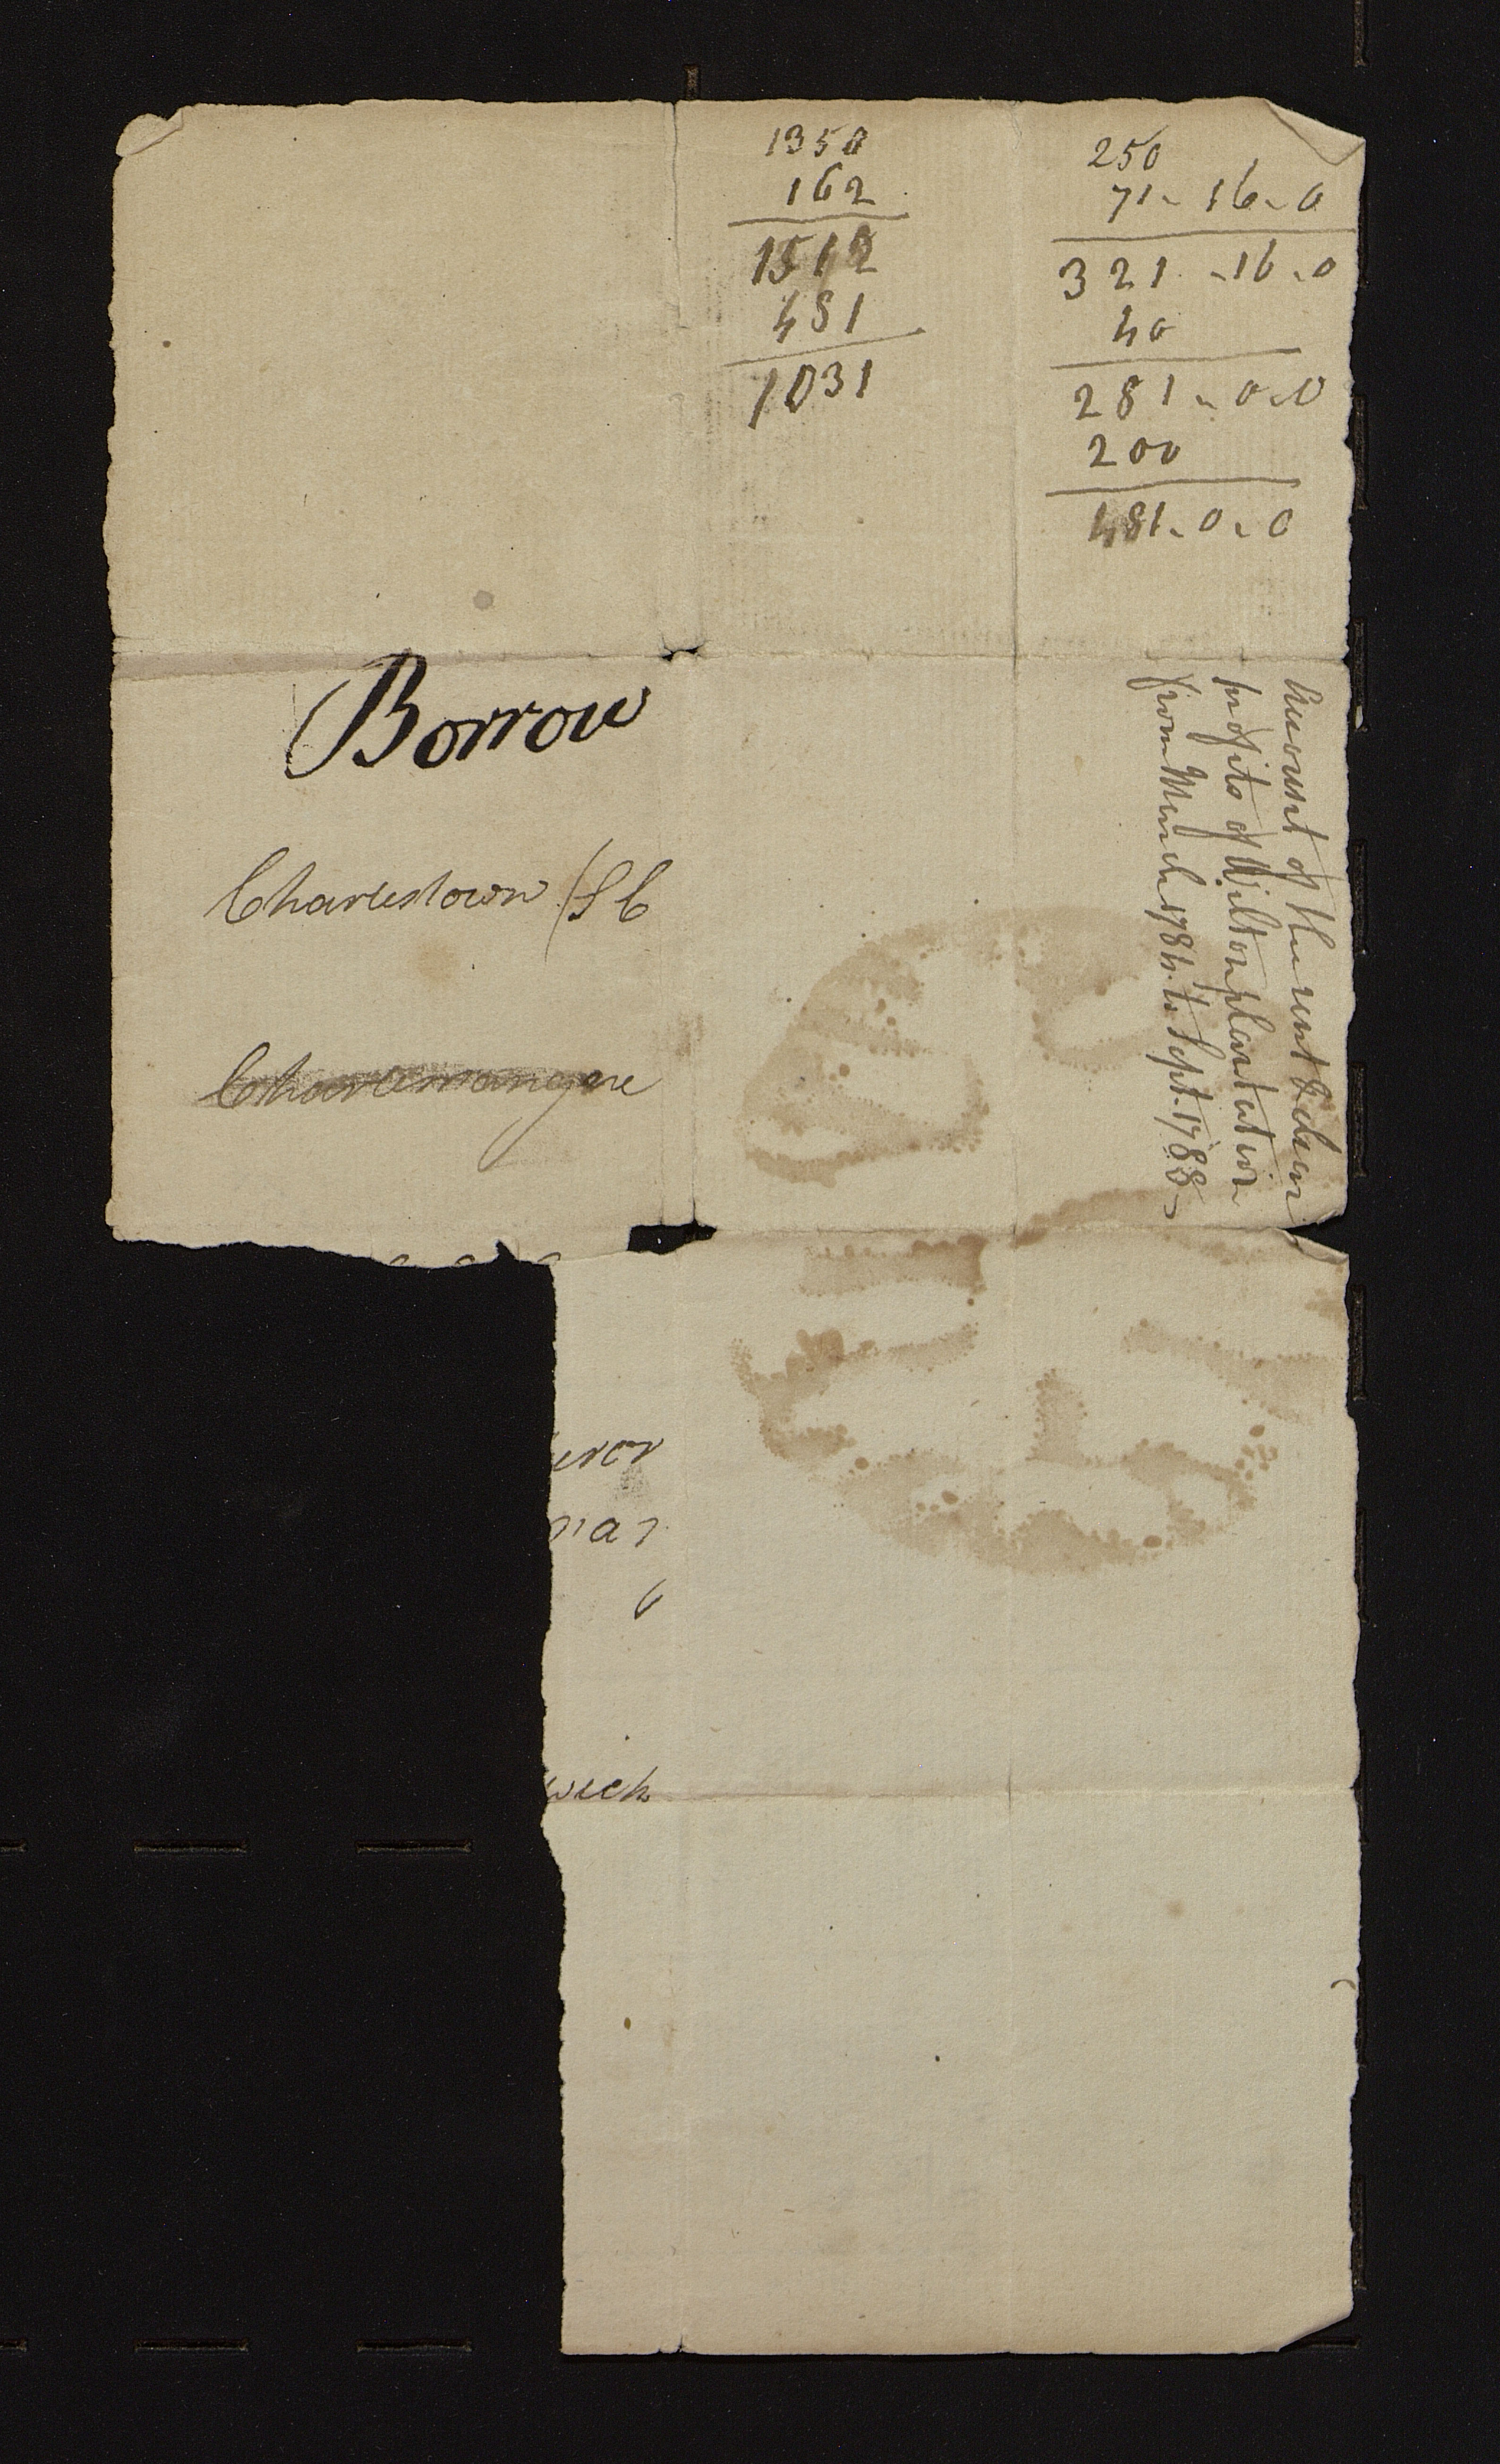 1350
162
1512
481
1031
250
71 - 16 - 0
321 - 16 - 0
40
281 - 0 - 0
200
481 - 0 - 0
Borrow
Charlestown (S C
Charlemangne
Account of the rent & clear
profits of Wilton plantation
from March 1784. to Sept. 1788 -
wich